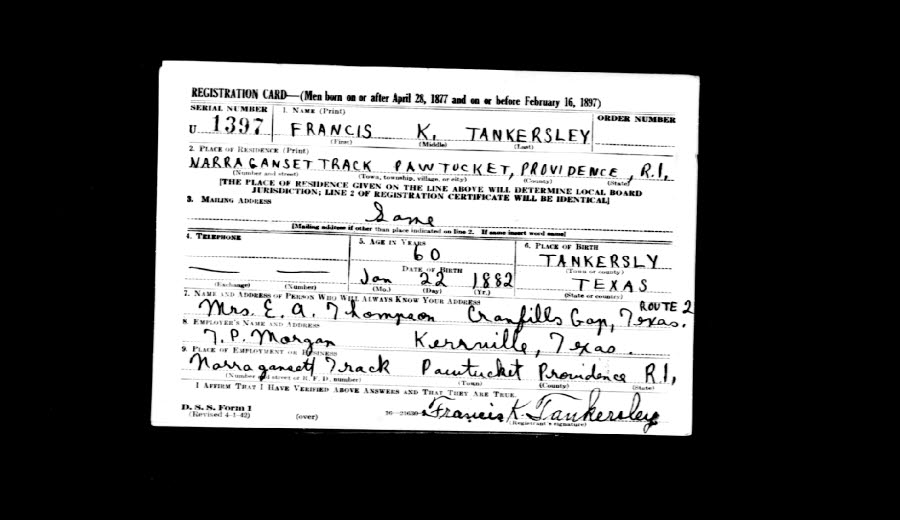 REGISTRATION CARD—(Men born on or after April 28, 1877 and on or before February 16, 1897)
SERIAL NUMBER 1. NAME (Print) ORDER NUMBER
U 1397 FRANCIS K. TANKERSLEY
(First) (Middle) (Last)
2. PLACE OF RESIDENCE (Print)
NARRAGANSET TRACK PAWTUCKET, PROVIDENCE, R.I.
(Number and street) (Town, township, village, or city) (County) (State)
[THE PLACE OF RESIDENCE GIVEN ON THE LINE ABOVE WILL DETERMINE LOCAL BOARD
JURISDICTION; LINE 2 OF REGISTRATION CERTIFICATE WILL BE IDENTICAL]
3. MAILING ADDRESS
Same
[Mailing address if other than place indicated on line 2. If same insert word same]
4. TELEPHONE 5. AGE IN YEARS 6. PLACE OF BIRTH
60 TANKERSLY
DATE OF BIRTH (Town or county)
Jan 22 1882 TEXAS
(Exchange) (Number) (Mo.) (Day) (Yr.) (State or country)
7. NAME AND ADDRESS OF PERSON WHO WILL ALWAYS KNOW YOUR ADDRESS ROUTE 2
Mrs. E. A. Thompson Cranfills Gap, Texas.
8. EMPLOYER'S NAME AND ADDRESS
T. P. Morgan Kerrville, Texas.
9. PLACE OF EMPLOYMENT OR BUSINESS
Narragansett Track Pawtucket Providence R.I.
(Number and street or R. F. D. number) (Town) (County) (State)
I AFFIRM THAT I HAVE VERIFIED ABOVE ANSWERS AND THAT THEY ARE TRUE.
D. S. S. Form 1
(Revised 4-1-42) (over) Francis K. Tankersley
(Registrant's signature)